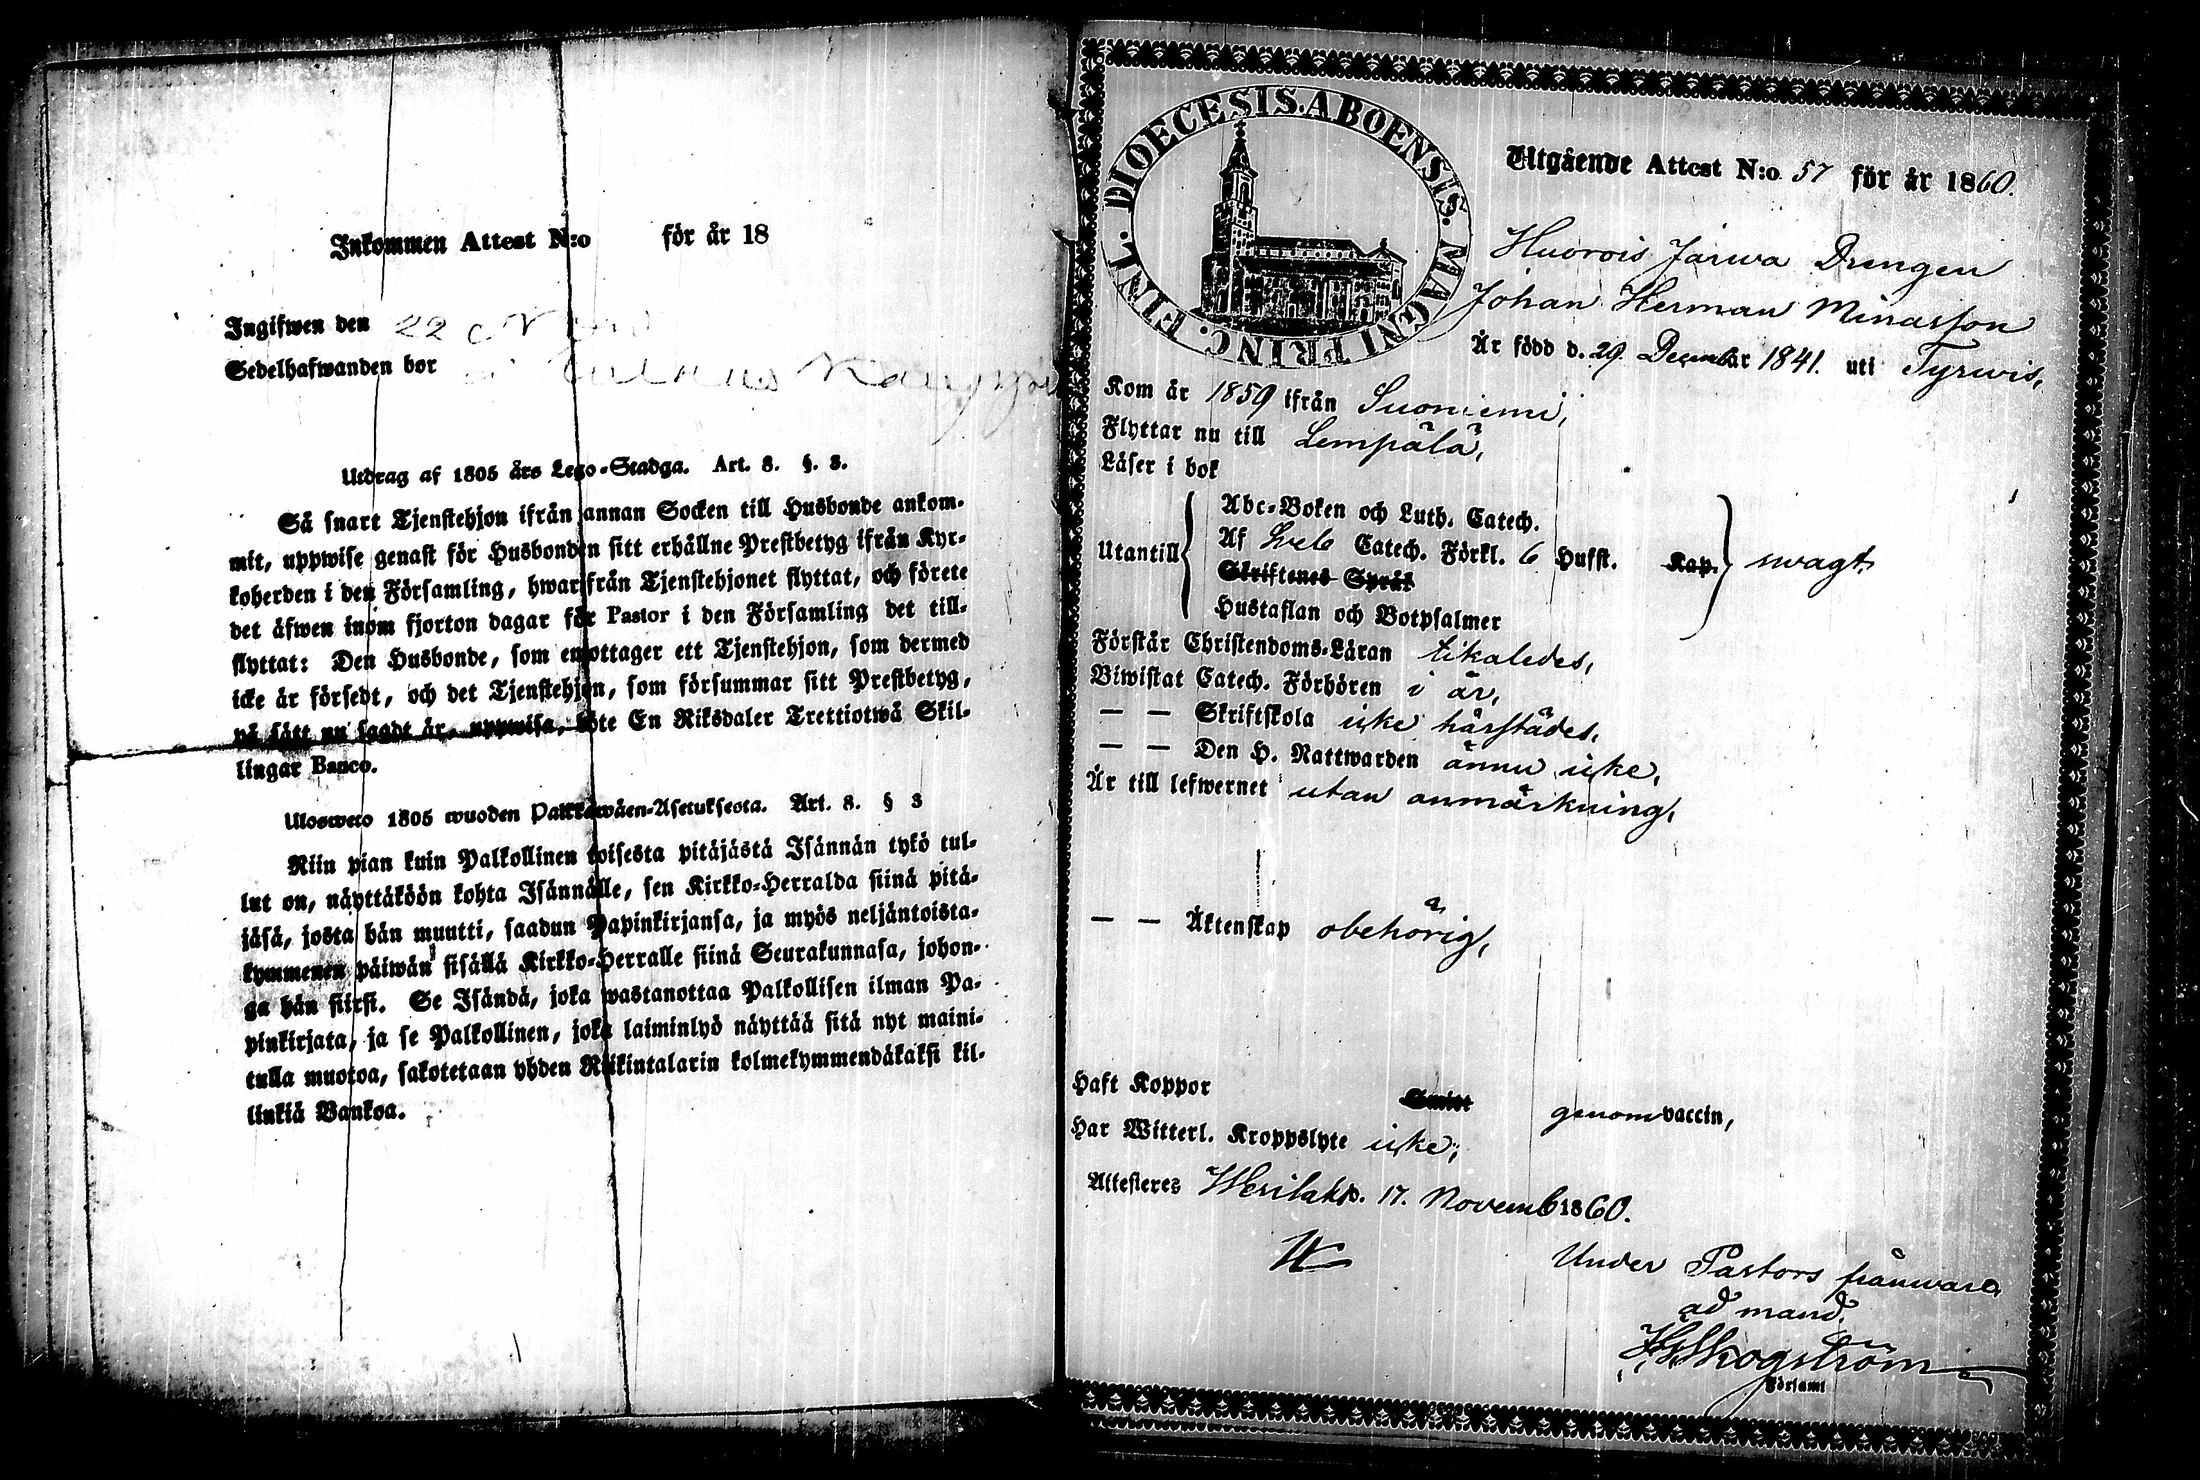 Inkommen Attest N:o för år 18
Ingifwen den 22 Nov
Sedelhafwanden bor i
Utdrag af 1805 års Lego-Stadga. Art. 8. §. 3.
Så snart Tjenstehjon ifrån annan Socken till Husbonde ankom-
mit, uppwise genast för Husbonden sitt erhållne Prestbetyg ifrån Kyr-
koherden i den Församling, hwarifrån Tjenstehjonet flyttat, och förete
det äfwen inom fjorton dagar för Pastor i den Församling det till-
flyttat: Den Husbonde, som emottager ett Tjenstehjon, som dermed
icke är försedt, och det Tjenstehjon, som försummar sitt Prestbetyg,
på sätt nu sagdt är, uppwisa, böte En Riksdaler Trettiotwå Skil-
lingar Banco.
Ulosweto 1805 wuoden Palkkawäen-Asetuksesta. Art. 8. § 3
Niin pian kuin Palkollinen toisesta pitäjästä Isännän tykö tul-
lut on, näyttäköön kohta Isännälle, sen Kirkko-Herralda siinä pitä-
jäsä, josta hän muutti, saadun Papinkirjansa, ja myös neljäntoista-
kymmenen päiwän sisällä Kirkko-Herralle siinä Seurakunnasa, johon-
ga hän siirsi. Se Isändä, joka wastanottaa Palkollisen ilman Pa-
pinkirjata, ja se Palkollinen, joka laiminlyö näyttää sitä nyt maini-
tulla muotoa, sakotetaan yhden Riikintalarin kolmekymmendäkaksi kil-
linkiä Bankoa.
DIOECESIS. ABOENSIS. MAGNI PRINC. FINL.
Utgående Attest N:o 57 för år 1860.
Huorois Järwa Drengen
Johan Herman Minasson
Är född d. 29 Decembr 1841. uti Tyrwis,
Kom år 1859 ifrån Suoniemi,
Flyttar nu till Lempälä,
Läser i bok
Utantill
Abc-Boken och Luth. Catech.
Af Sveb Catech. Förkl. 6 Hufst. Kap. swagt.
Skriftenes Språk
Hustaflan och Botpsalmer
Förstår Christendoms-Läran likaledes,
Biwistat Catech. Förhören i år,
— — Skriftskola icke härstädes,
— — Den H. Nattwarden ännu icke,
Är till lefwernet utan anmärkning,
— — Äktenskap obehörig,
Haft Koppor Smitt genom vaccin,
Har Witterl. Kroppslyte icke,
Attesteras Wesilaks d. 17. Novemb 1860.
Under Pastors frånwaro
ad mand.
Skogström
Församl